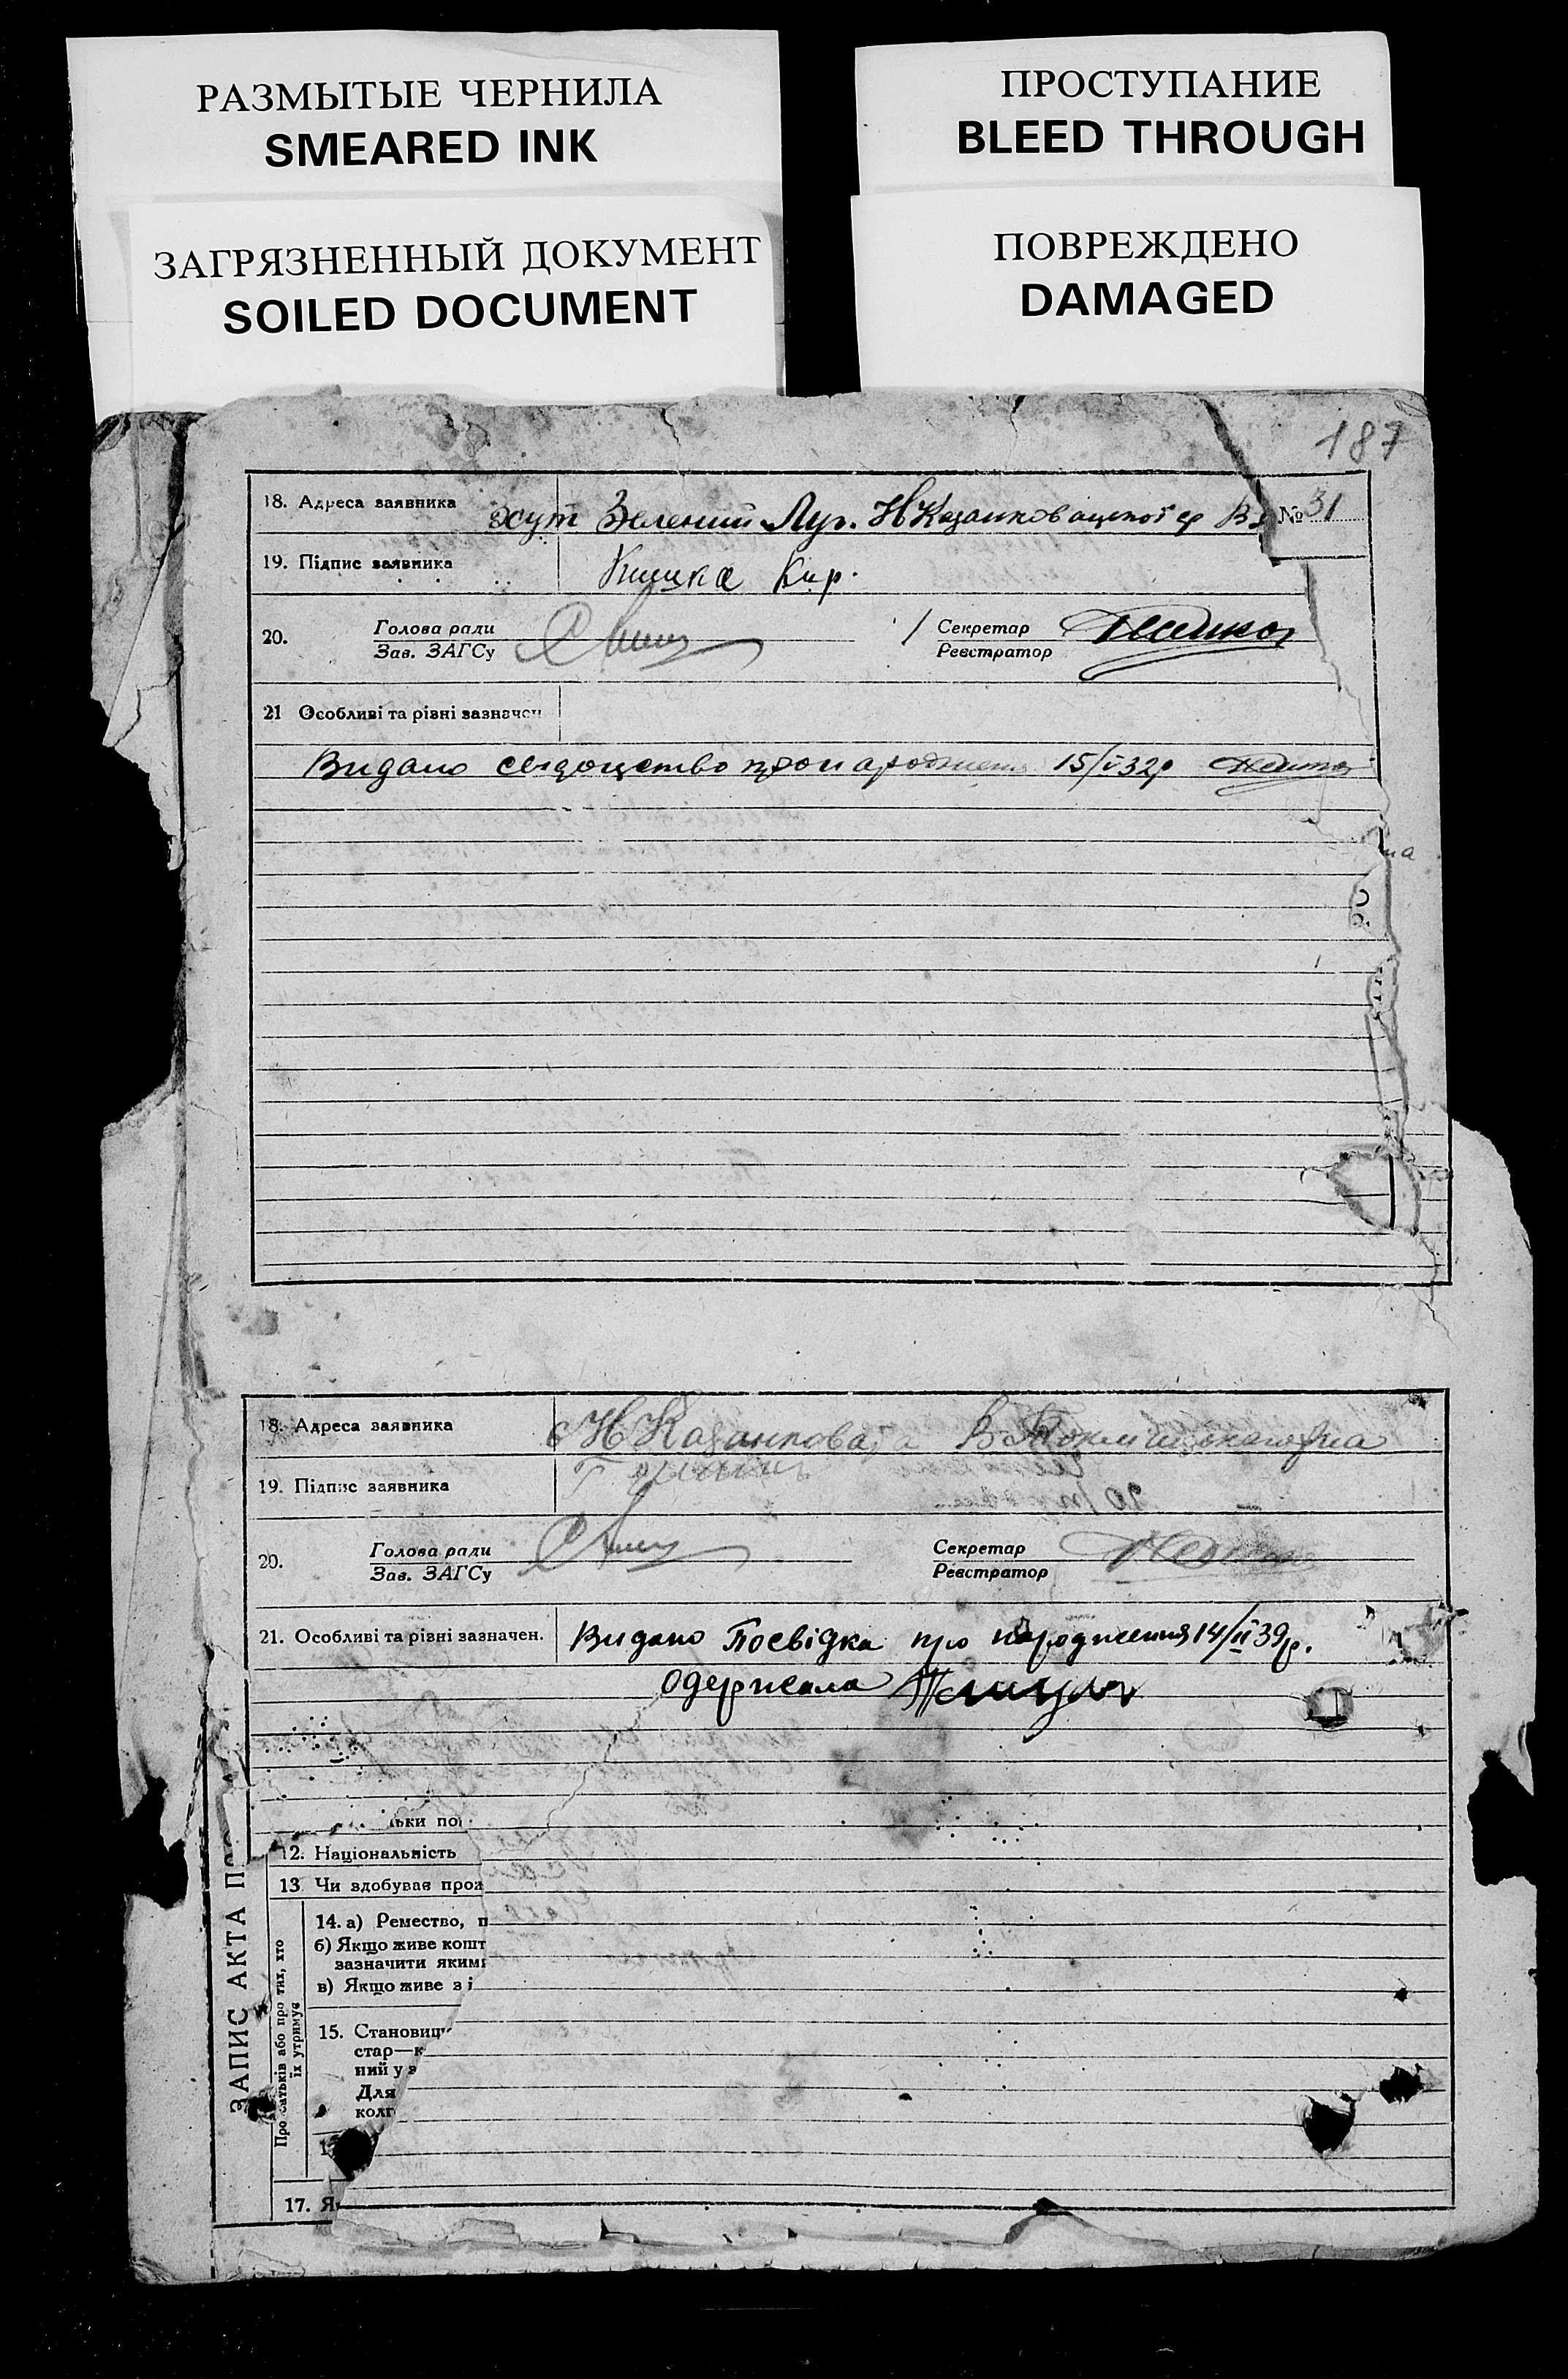 РАЗМЫТЫЕ ЧЕРНИЛА
SMEARED INK
ПРОСТУПАНИЕ
BLEED THROUGH
ЗАГРЯЗНЕННЫЙ ДОКУМЕНТ
SOILED DOCUMENT
ПОВРЕЖДЕНО
DAMAGED
187
18. Адреса заявника хут Зелений Луг. НКазанковацької ср В №31
19. Підпис заявника Кишка Кир.
20. Голова ради Секретар
Зав. ЗАГСу Реєстратор
21 Особливі та різні зазначен
Видано свідоцтво про народження 15/V 32р
18. Адреса заявника с НКазанковата
19. Підпис заявника
20. Голова ради Секретар
Зав. ЗАГСу Реєстратор
21. Особливі та різні зазначен. Видано Посвідка про народження 14/II 39р.
одержала
ьки по
12. Національність
13 Чи здобував проз
14. а) Ремество, п
б) Якщо живе кошт
зазначити яким
в) Якщо живе з і
15. Становищ
стар—к
ний у з
Для
колг
17. Я
ЗАПИС АКТА ПРО
Про батьків або про тих, хто
їх утримує